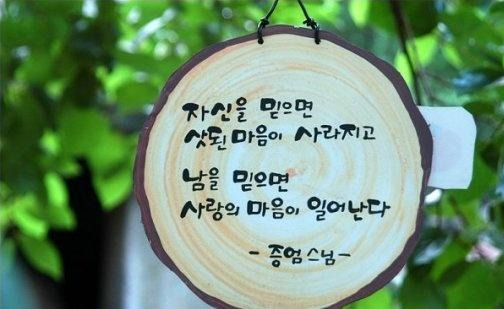 자신을 믿으면
삿된 마음이 사라지고
남을 믿으면
사랑의 마음이 일어난다
- 증엄스님 -